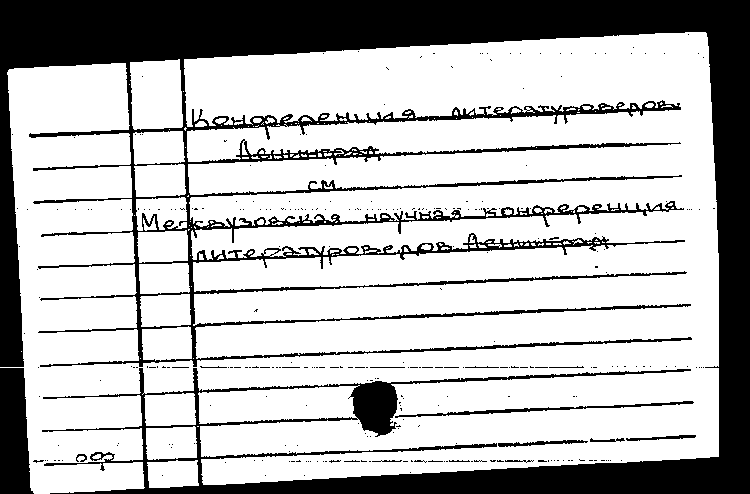 Конференция литературоведов
Ленинград
см
Межвузовская научная конференция
литературоведов Ленинград.